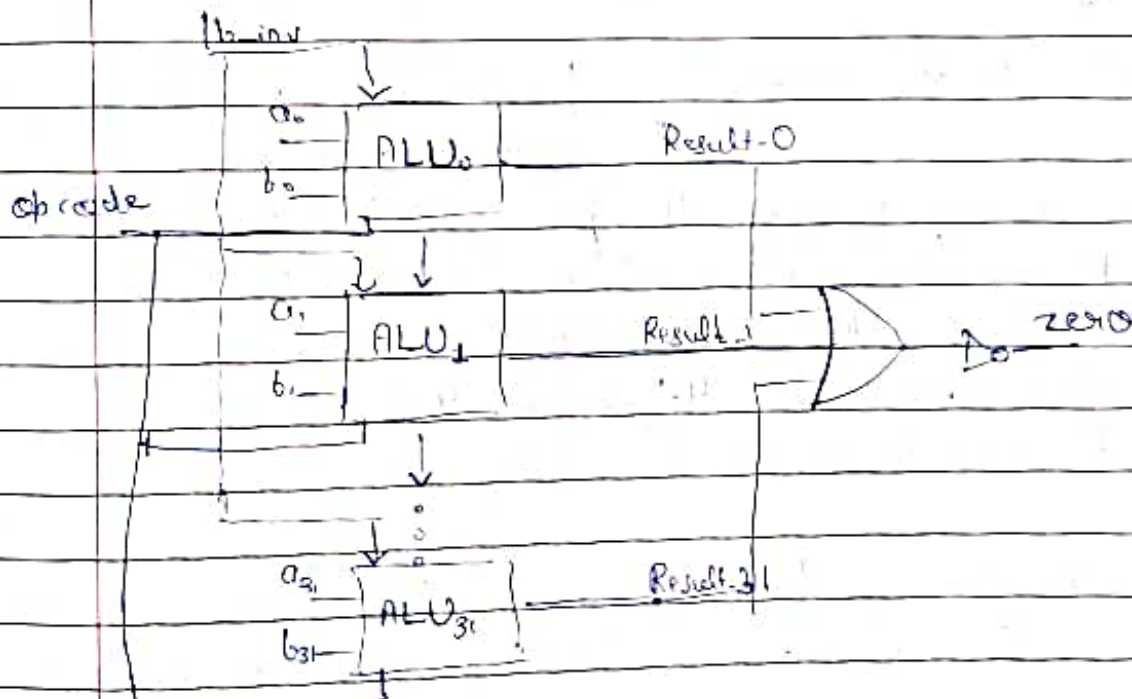 b_inv
a₀
ALU₀
Result-0
b₀
opcode
a₁
ALU₁
Result-1
zero
b₁
a₃₁
ALU₃₁
Result-31
b₃₁